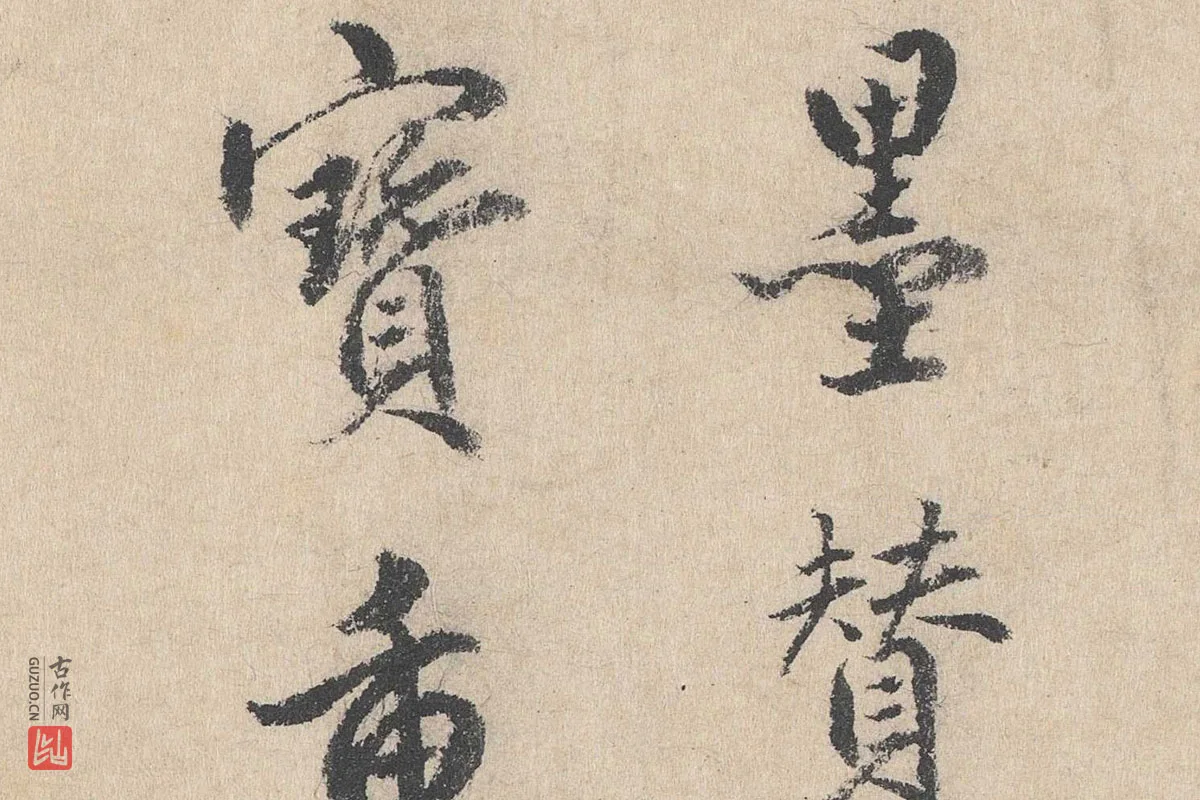 墨賛
寶
古作网
GUZUO.CN